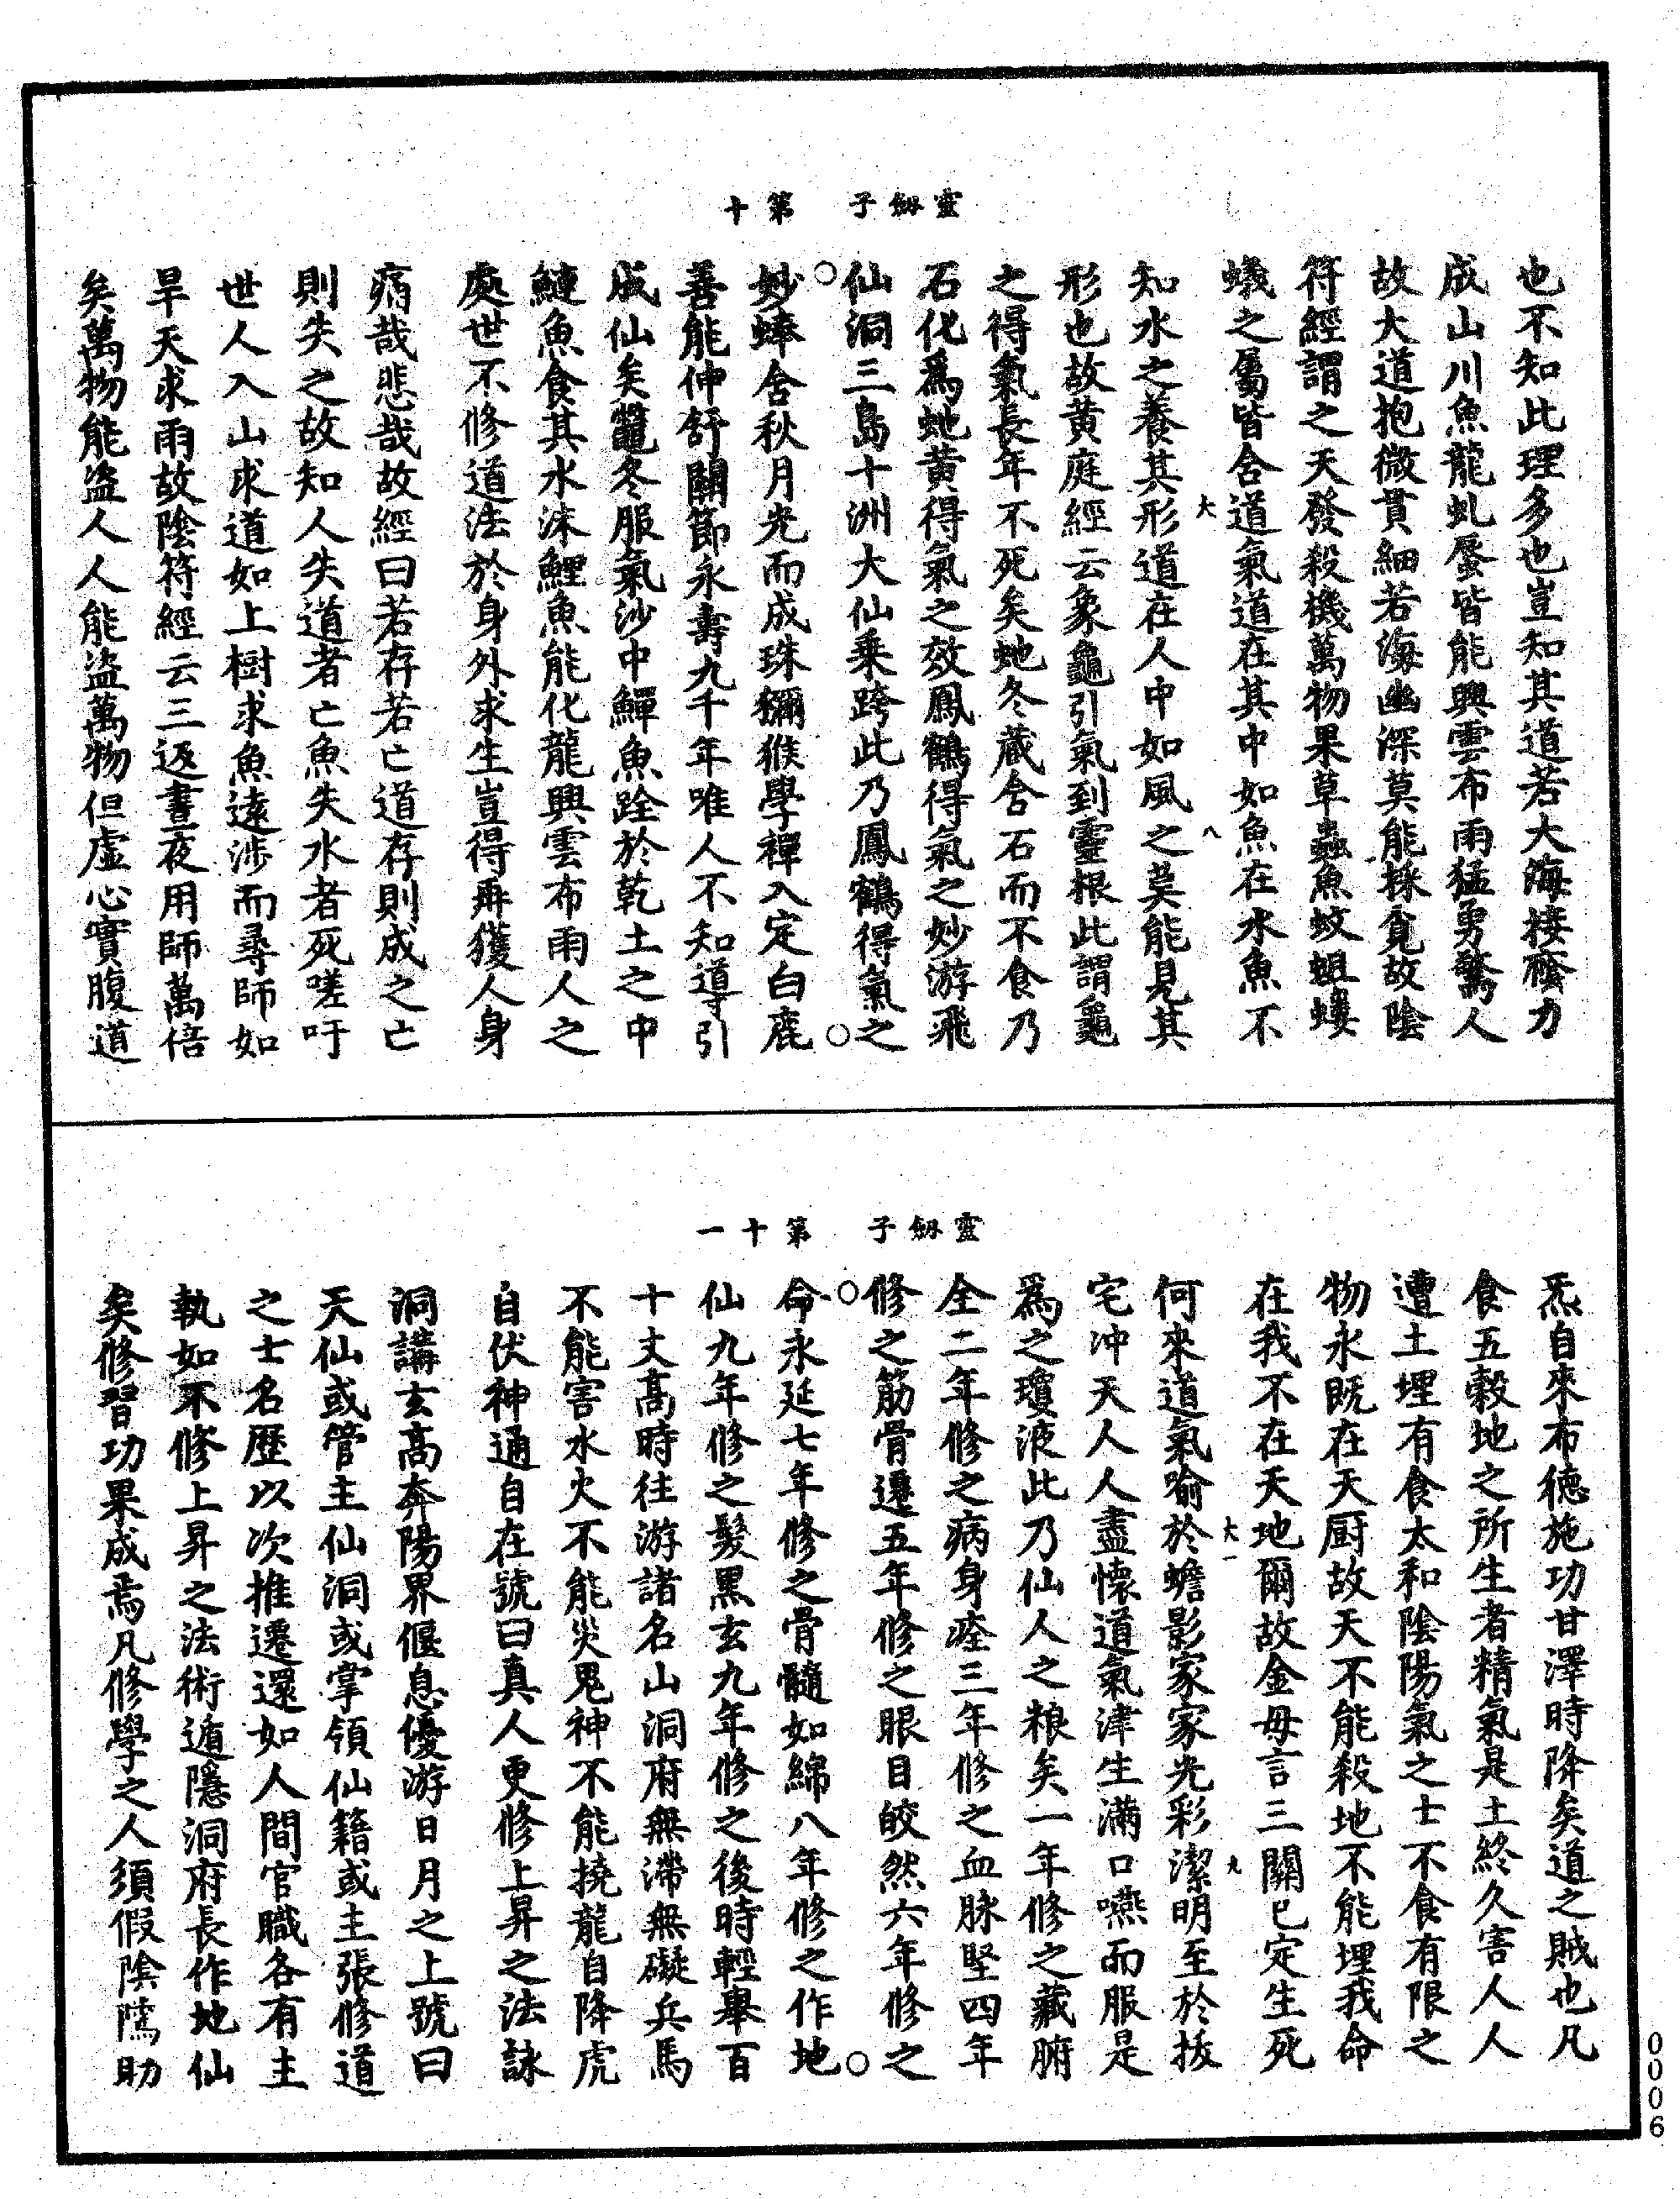 靈劔子 第十
也不知此理多也豈知其道若大海棲藏力
成山川魚龍虬蜃皆能興雲布雨猛勇驚人
故大道抱微貫細若海幽深莫能採覓故陰
符經謂之天發殺機萬物果草蟲魚蚊蛆螻
蟻之屬皆含道氣道在其中如魚在水魚不
大 八
知水之養其形道在人中如風之莫能見其
形也故黄庭經云象龜引氣到靈根此謂龜
之得氣長年不死矣虵冬藏含石而不食乃
石化爲虵黄得氣之效鳳鶴得氣之妙游飛
仙洞三島十洲大仙乗跨此乃鳳鶴得氣之
妙蜯含秋月光而成珠獼猴學禪入定白鹿
善能伸舒關節永壽九千年唯人不知導引
成仙矣鼉冬服氣沙中鱓魚跧於乾土之中
鰱魚食其水沫鯉魚能化龍興雲布雨人之
處世不修道法於身外求生豈得再獲人身
痛哉悲哉故經曰若存若亡道存則成之亡
則失之故知人失道者亡魚失水者死嗟吁
世人入山求道如上樹求魚遠涉而尋師如
旱天求雨故陰符經云三返晝夜用師萬倍
矣萬物能盗人人能盗萬物但虛心實腹道
靈劔子 第十一
炁自來布德施功甘澤時降矣道之賊也凡
食五穀地之所生者精氣是土終久害人人
遭土埋有食太和陰陽氣之士不食有限之
物永既在天厨故天不能殺地不能埋我命
在我不在天地爾故金母言三關已定生死
大一 九
何來道氣喻於蟾影家家光彩潔明至於拔
宅沖天人人盡懷道氣津生滿口嚥而服是
爲之瓊液此乃仙人之粮矣一年修之藏腑
全二年修之病身痊三年修之血脉堅四年
修之筋骨遷五年修之眼目皎然六年修之
命永延七年修之骨髓如綿八年修之作地
仙九年修之髮黑玄九年修之後時輕舉百
十丈高時往游諸名山洞府無滯無礙兵馬
不能害水火不能災鬼神不能撓龍自降虎
自伏神通自在號曰真人更修上昇之法詠
洞講玄高奔陽界偃息優游日月之上號曰
天仙或管主仙洞或掌領仙籍或主張修道
之士名歷以次推遷還如人間官職各有主
執如不修上昇之法術遁隱洞府長作地仙
矣修習功果成焉凡修學之人須假陰隲助
0006